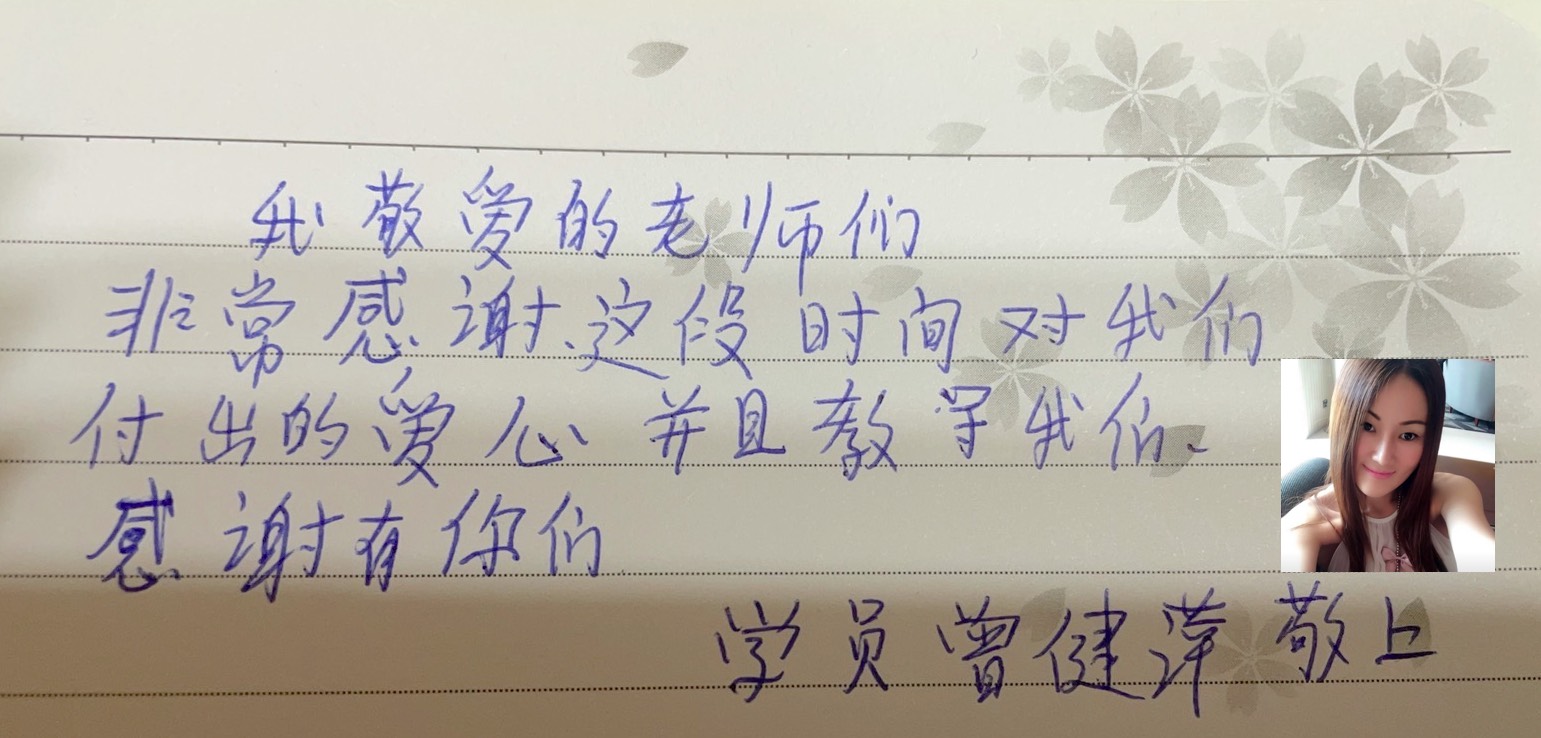 我敬爱的老师们
非常感谢、这段时间对我们
付出的爱心并且教学我们、
感谢有你们
学员曾健萍敬上